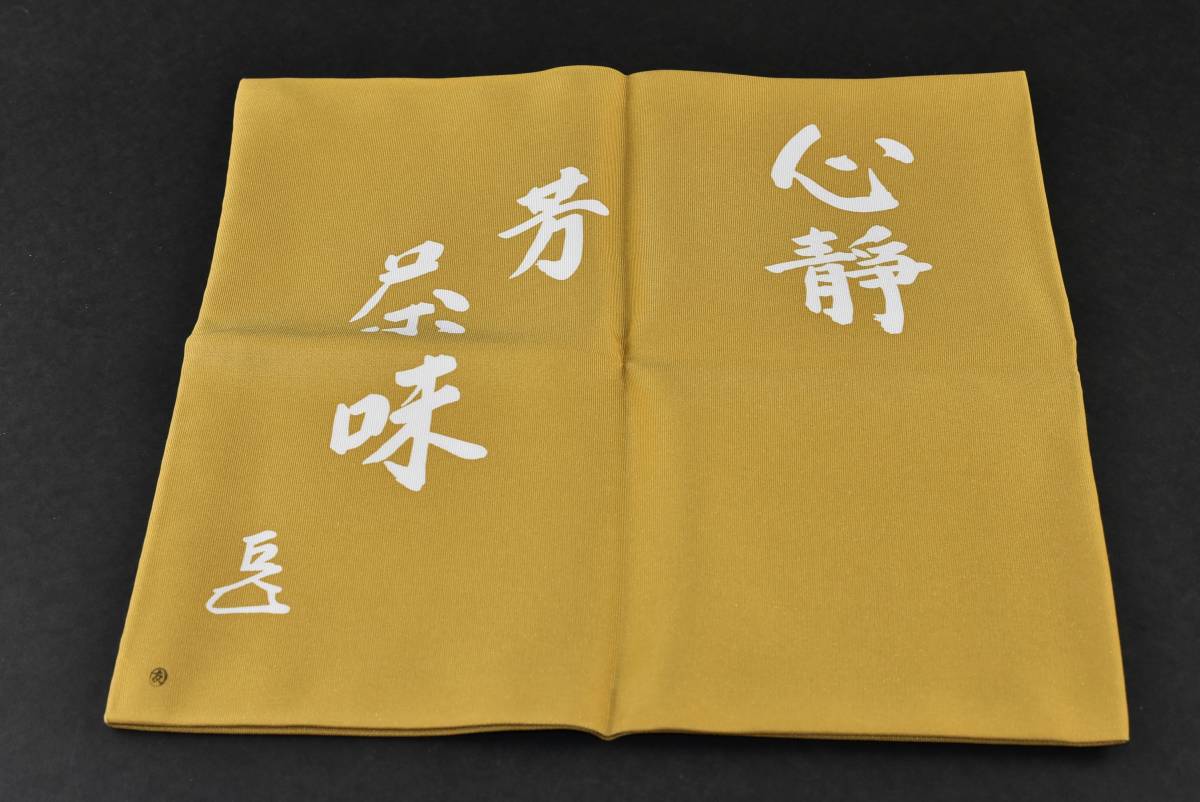 心静
芳
茶味
友